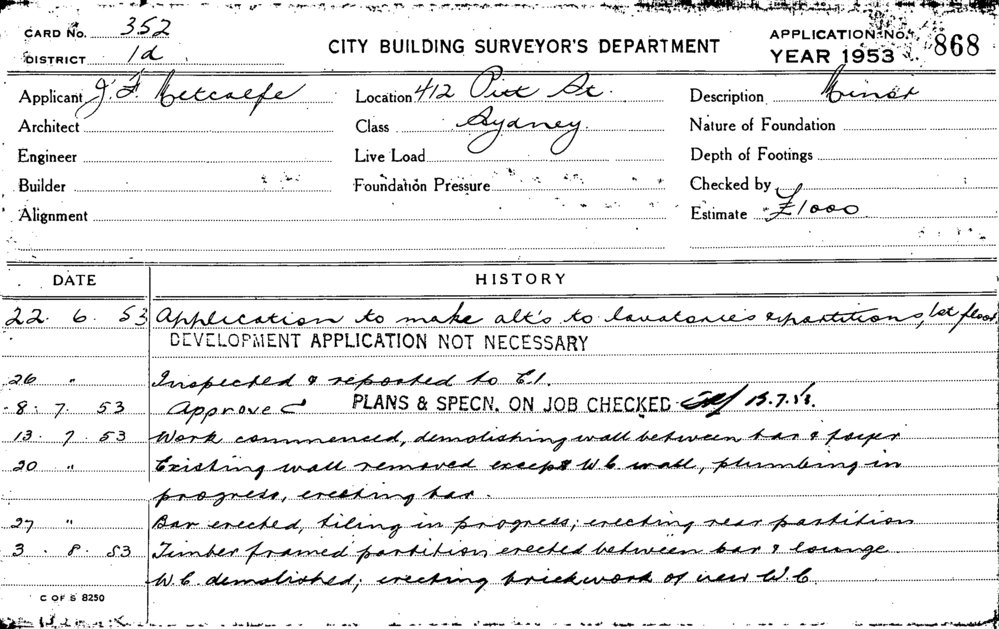 CARD NO. 352
DISTRICT 1d
CITY BUILDING SURVEYOR'S DEPARTMENT
APPLICATION NO. 868
YEAR 1953
Applicant J. F. Metcalfe
Location 412 Pitt St.
Description Minor
Architect
Class Sydney
Nature of Foundation
Engineer
Live Load
Depth of Footings
Builder
Foundation Pressure
Checked by
Alignment
Estimate £1000
DATE HISTORY
22. 6. 53 Application to make alt's to lavatories & partitions, 1st floor
DEVELOPMENT APPLICATION NOT NECESSARY
26 " Inspected & reported to E.1.
8. 7. 53 Approved PLANS & SPECN. ON JOB CHECKED 13.7.53.
13. 7. 53 Work commenced, demolishing wall between bar & foyer
20 " Existing wall removed except W.C. wall, plumbing in
progress, erecting bar.
27 " Bar erected, tiling in progress; erecting rear partition
3. 8. 53 Timber framed partition erected between bar & lounge
W.C. demolished; erecting brickwork of new W.C.
C OF S 8250